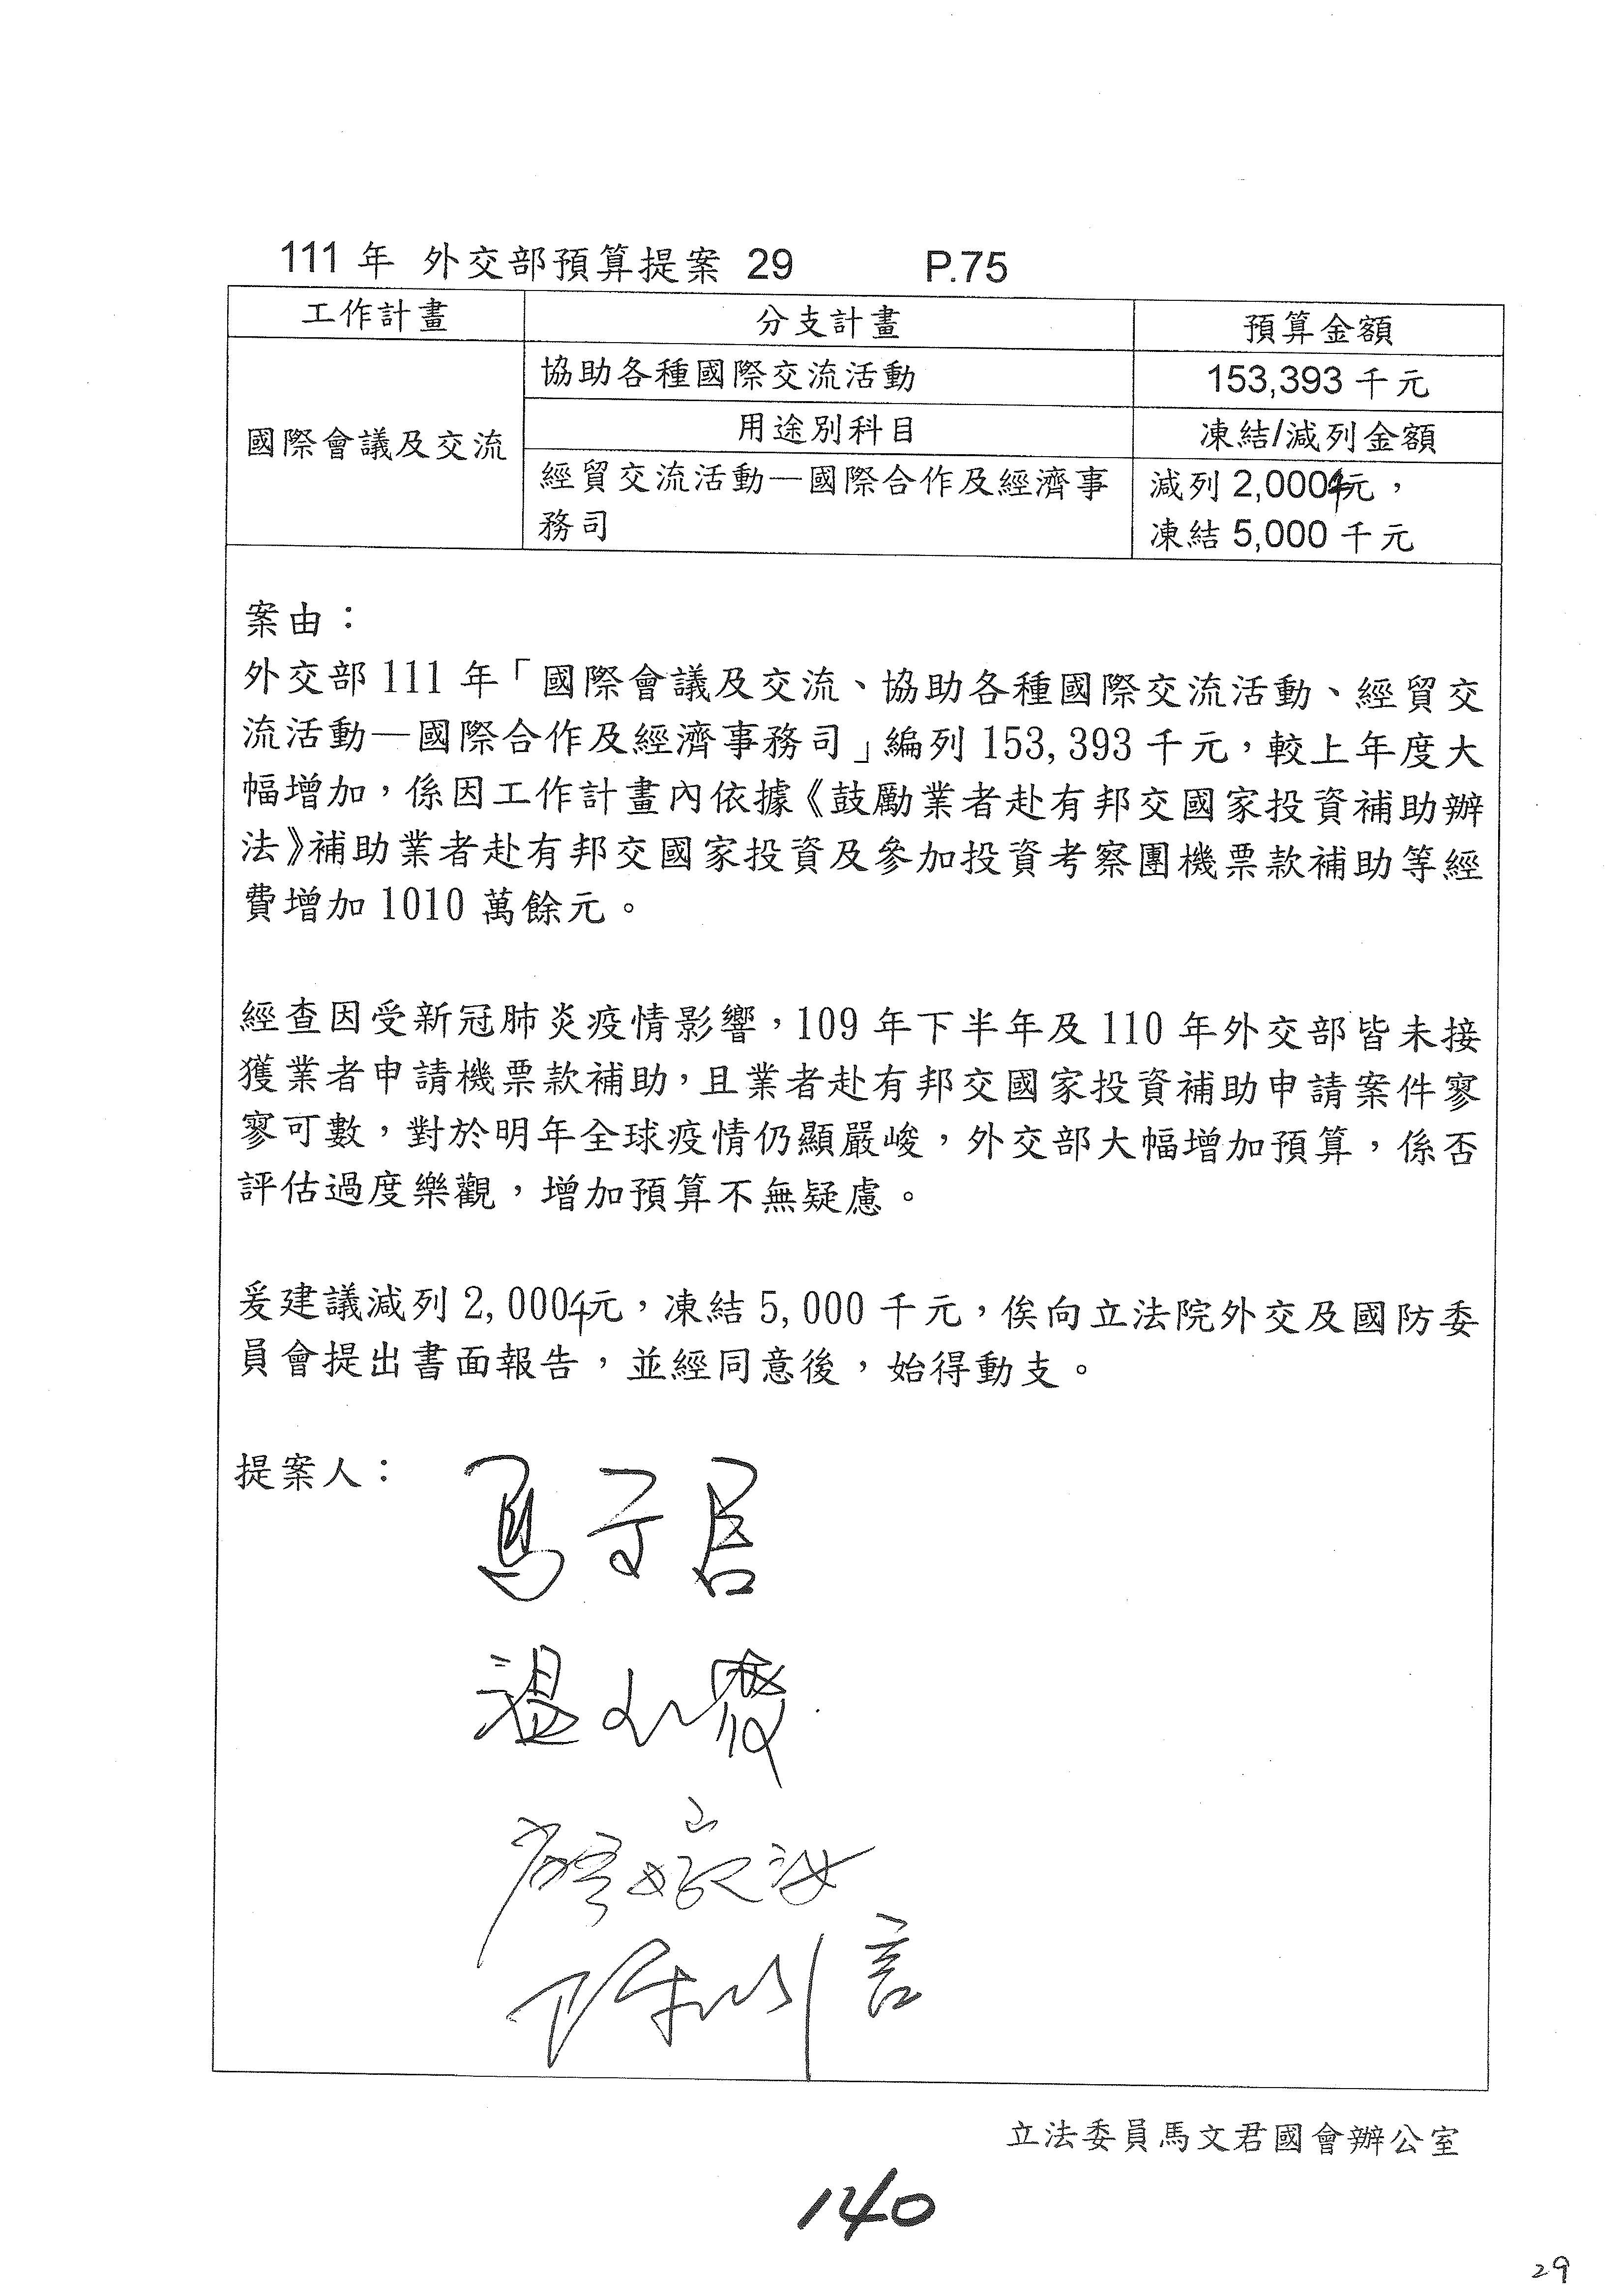 111 年 外交部預算提案 29 P.75
工作計畫 分支計畫 預算金額
國際會議及交流
協助各種國際交流活動 153,393 千元
用途別科目 凍結/減列金額
經貿交流活動—國際合作及經濟事 減列 2,000千元，
務司 凍結 5,000 千元
案由：
外交部 111 年「國際會議及交流、協助各種國際交流活動、經貿交
流活動—國際合作及經濟事務司」編列 153,393 千元，較上年度大
幅增加，係因工作計畫內依據《鼓勵業者赴有邦交國家投資補助辦
法》補助業者赴有邦交國家投資及參加投資考察團機票款補助等經
費增加 1010 萬餘元。
經查因受新冠肺炎疫情影響，109 年下半年及 110 年外交部皆未接
獲業者申請機票款補助，且業者赴有邦交國家投資補助申請案件寥
寥可數，對於明年全球疫情仍顯嚴峻，外交部大幅增加預算，係否
評估過度樂觀，增加預算不無疑慮。
爰建議減列 2,000千元，凍結 5,000 千元，俟向立法院外交及國防委
員會提出書面報告，並經同意後，始得動支。
提案人：
馬文君
溫玉霞
陳以信
立法委員馬文君國會辦公室
140
29